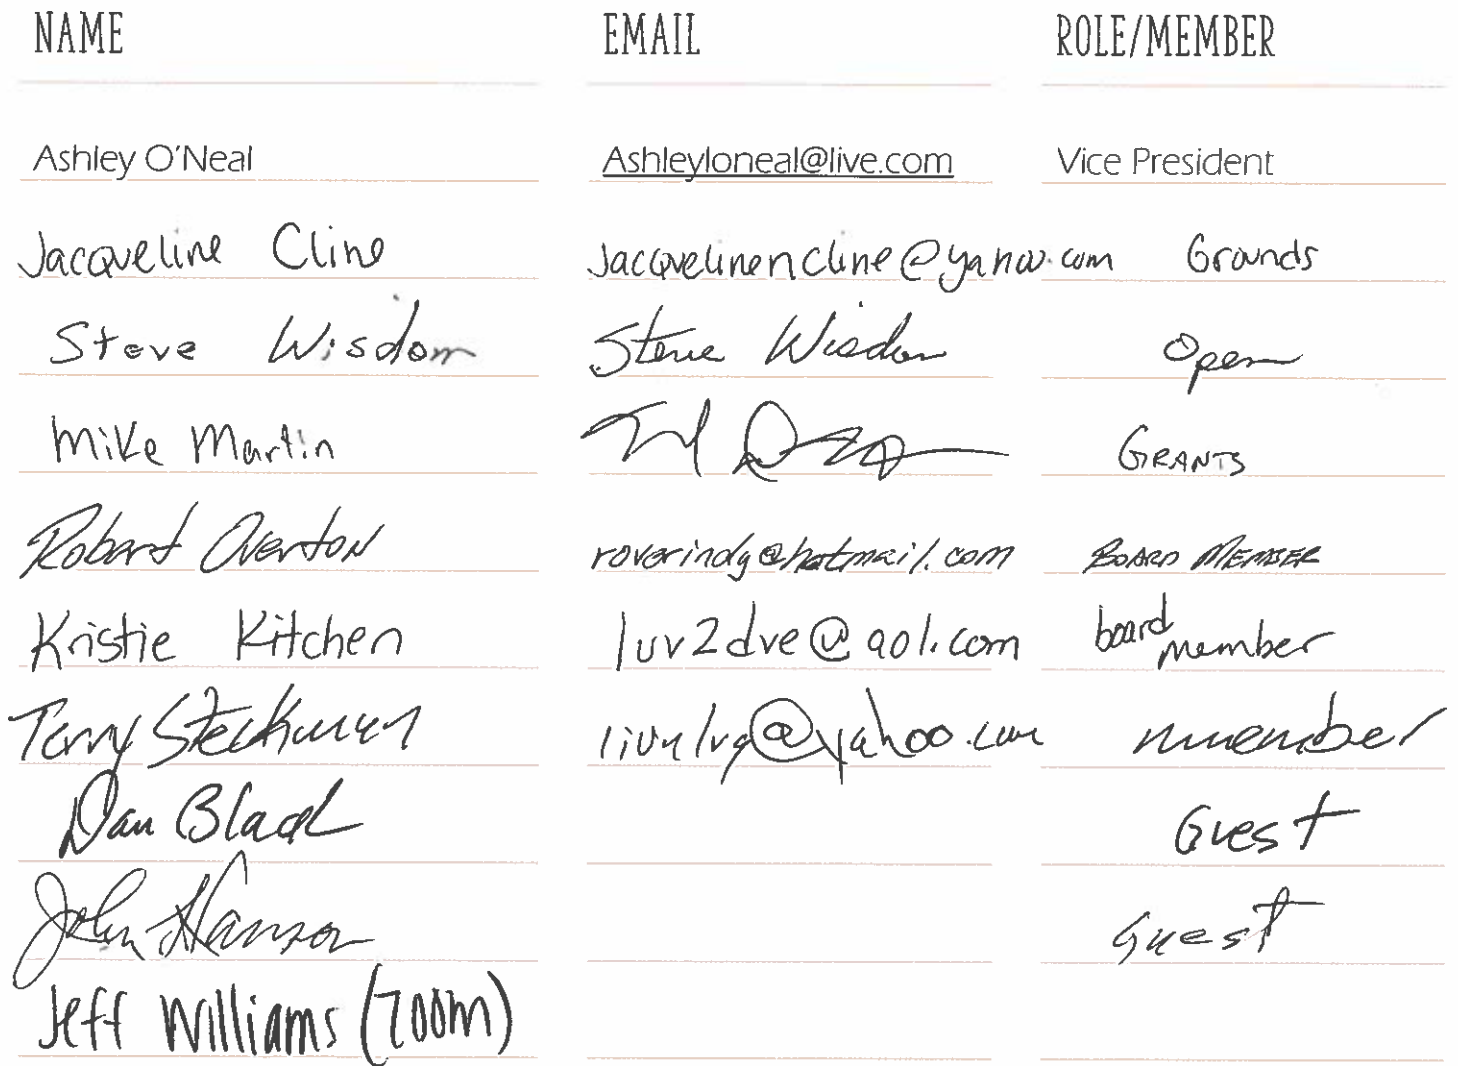 NAME EMAIL ROLE/MEMBER
Ashley O'Neal Ashleyloneal@live.com Vice President
Jacqueline Cline Jacquelinencline@yahoo.com Grounds
Steve Wisdom Steve Wisdom Open
Mike Martin GRANTS
Robert Overton roverindy@hotmail.com BOARD MEMBER
Kristie Kitchen luv2dve@aol.com board member
Terry Steckman member
Dan Black Guest
John Hanson Guest
Jeff Williams (zoom)